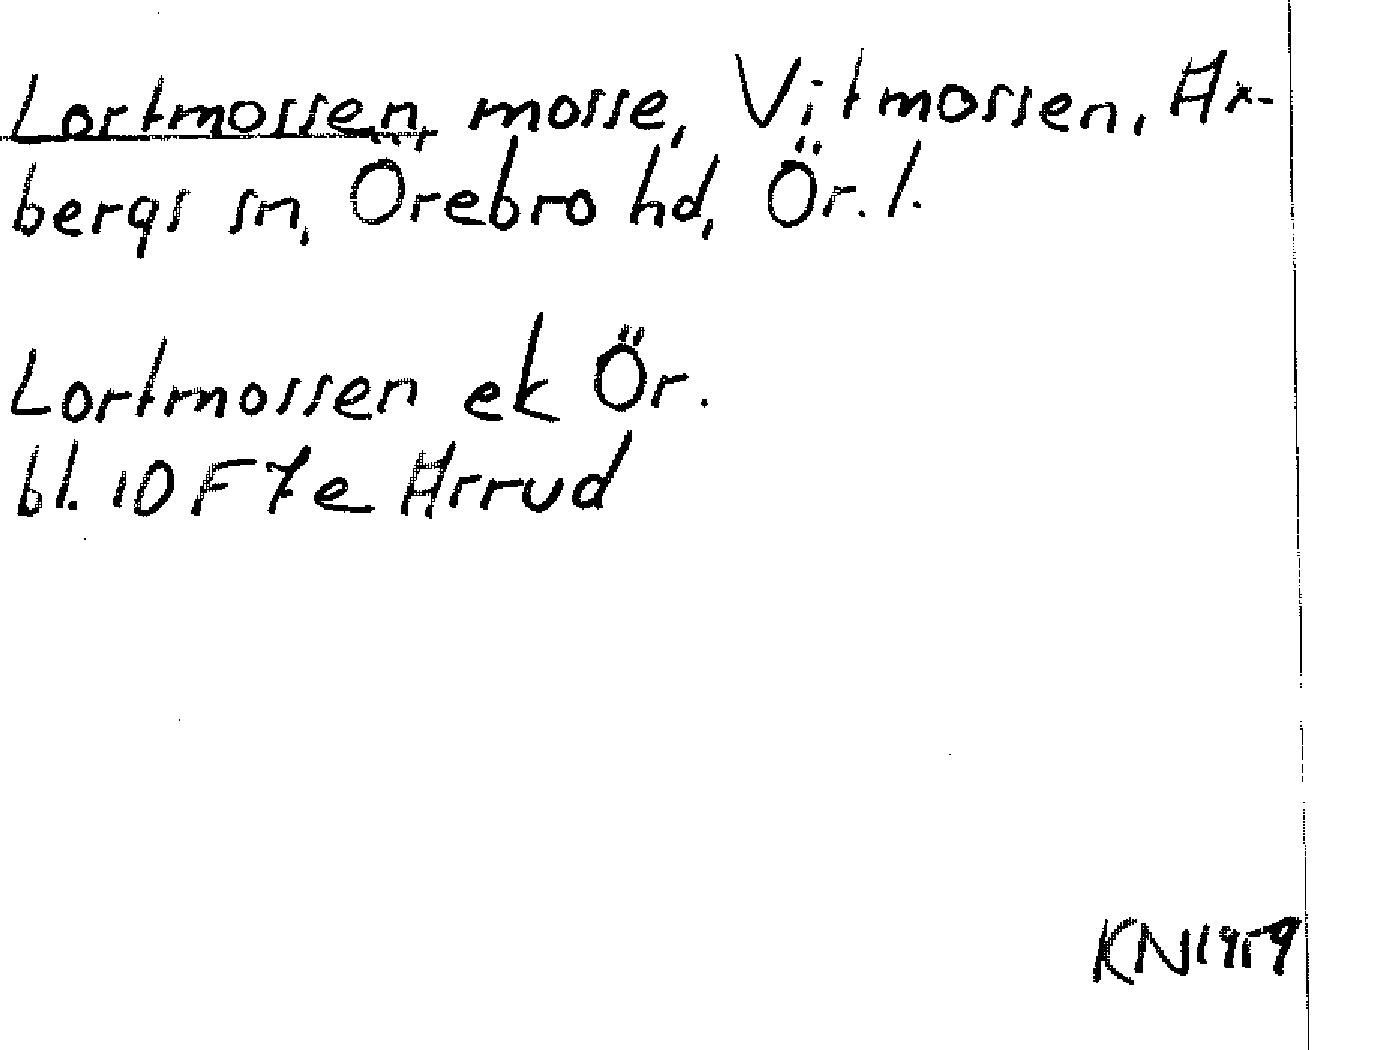 Lortmossen, mosse, Vitmossen, Ax-
bergs sn, Örebro hd, Ör. l.
Lortmossen ek Ör.
bl. 10 F 7e Arrud
KN 1959